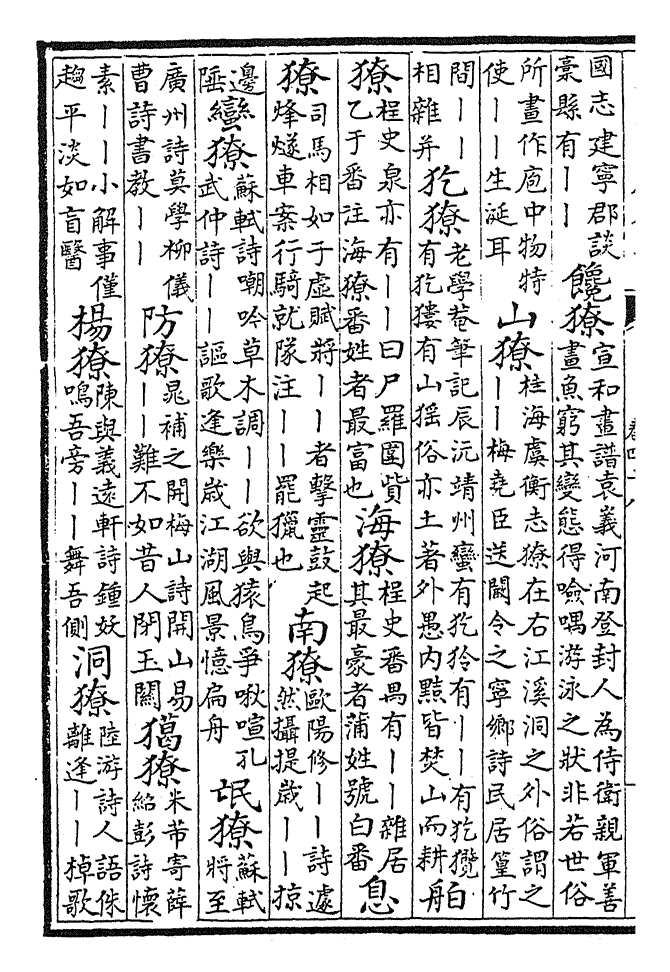 國志建寧郡談
藁縣有丨丨
饞獠
宣和畫譜袁義河南登封人為侍衛親軍善
畫魚窮其變態得噞喁游泳之狀非若世俗
所畫作庖中物特
使丨丨生涎耳
山獠
桂海虞衡志獠在右江溪洞之外俗謂之
丨丨梅堯臣送闕令之寧鄉詩民居篁竹
間丨丨
相雜并
犵獠
老學菴筆記辰沅靖州蠻有犵狑有丨丨有犵㰖
有犵㺏有山猺俗亦土著外愚內黠皆焚山而耕
舶
獠
桯史泉亦有丨丨曰尸羅圍貲
乙于番注海獠番姓者最富也
海獠
桯史番禺有丨丨雜居
其最豪者蒲姓號白番
息
獠
司馬相如子虛賦將丨丨者擊靈鼓起
烽燧車案行騎就隊注丨丨罷獵也
南獠
歐陽修丨丨詩遽
然攝提歲丨丨掠
邊
陲
蠻獠
蘇軾詩嘲吟草木調丨丨欲與猿鳥爭啾喧孔
武仲詩丨丨謳歌逢樂歲江湖風景憶扁舟
氓獠
蘇軾
將至
廣州詩莫學柳儀
曹詩書教丨丨
防獠
晁補之開梅山詩開山易
丨丨難不如昔人閉玉關
獦獠
米芾寄薛
紹彭詩懷
素丨丨小解事僅
趨平淡如盲醫
揚獠
陳與義遠軒詩鍾妖
鳴吾旁丨丨舞吾側
洞獠
陸游詩人語侏
離逢丨丨棹歌